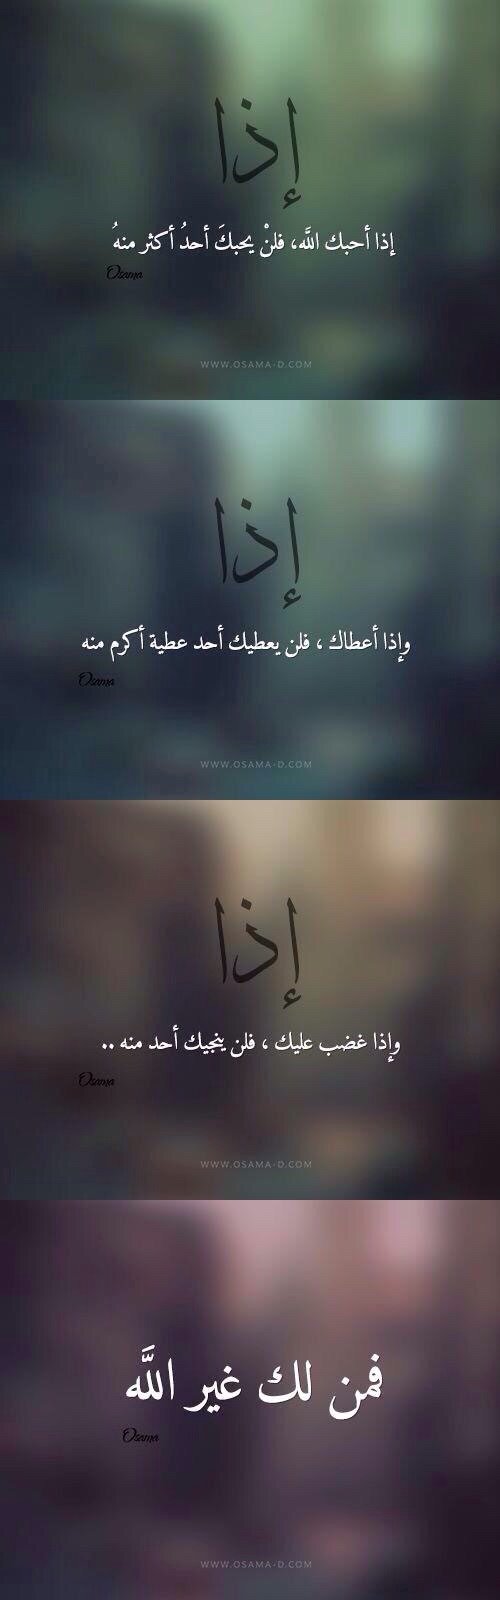 إذا
إذا أحبك اللَّه، فلنْ يحبكَ أحدُ أكثر منهُ
Osama
WWW.OSAMA-D.COM
إذا
وإذا أعطاك ، فلن يعطيك أحد عطية أكرم منه
Osama
WWW.OSAMA-D.COM
إذا
وإذا غضب عليك ، فلن ينجيك أحد منه ..
Osama
WWW.OSAMA-D.COM
فمن لك غير اللَّه
Osama
WWW.OSAMA-D.COM